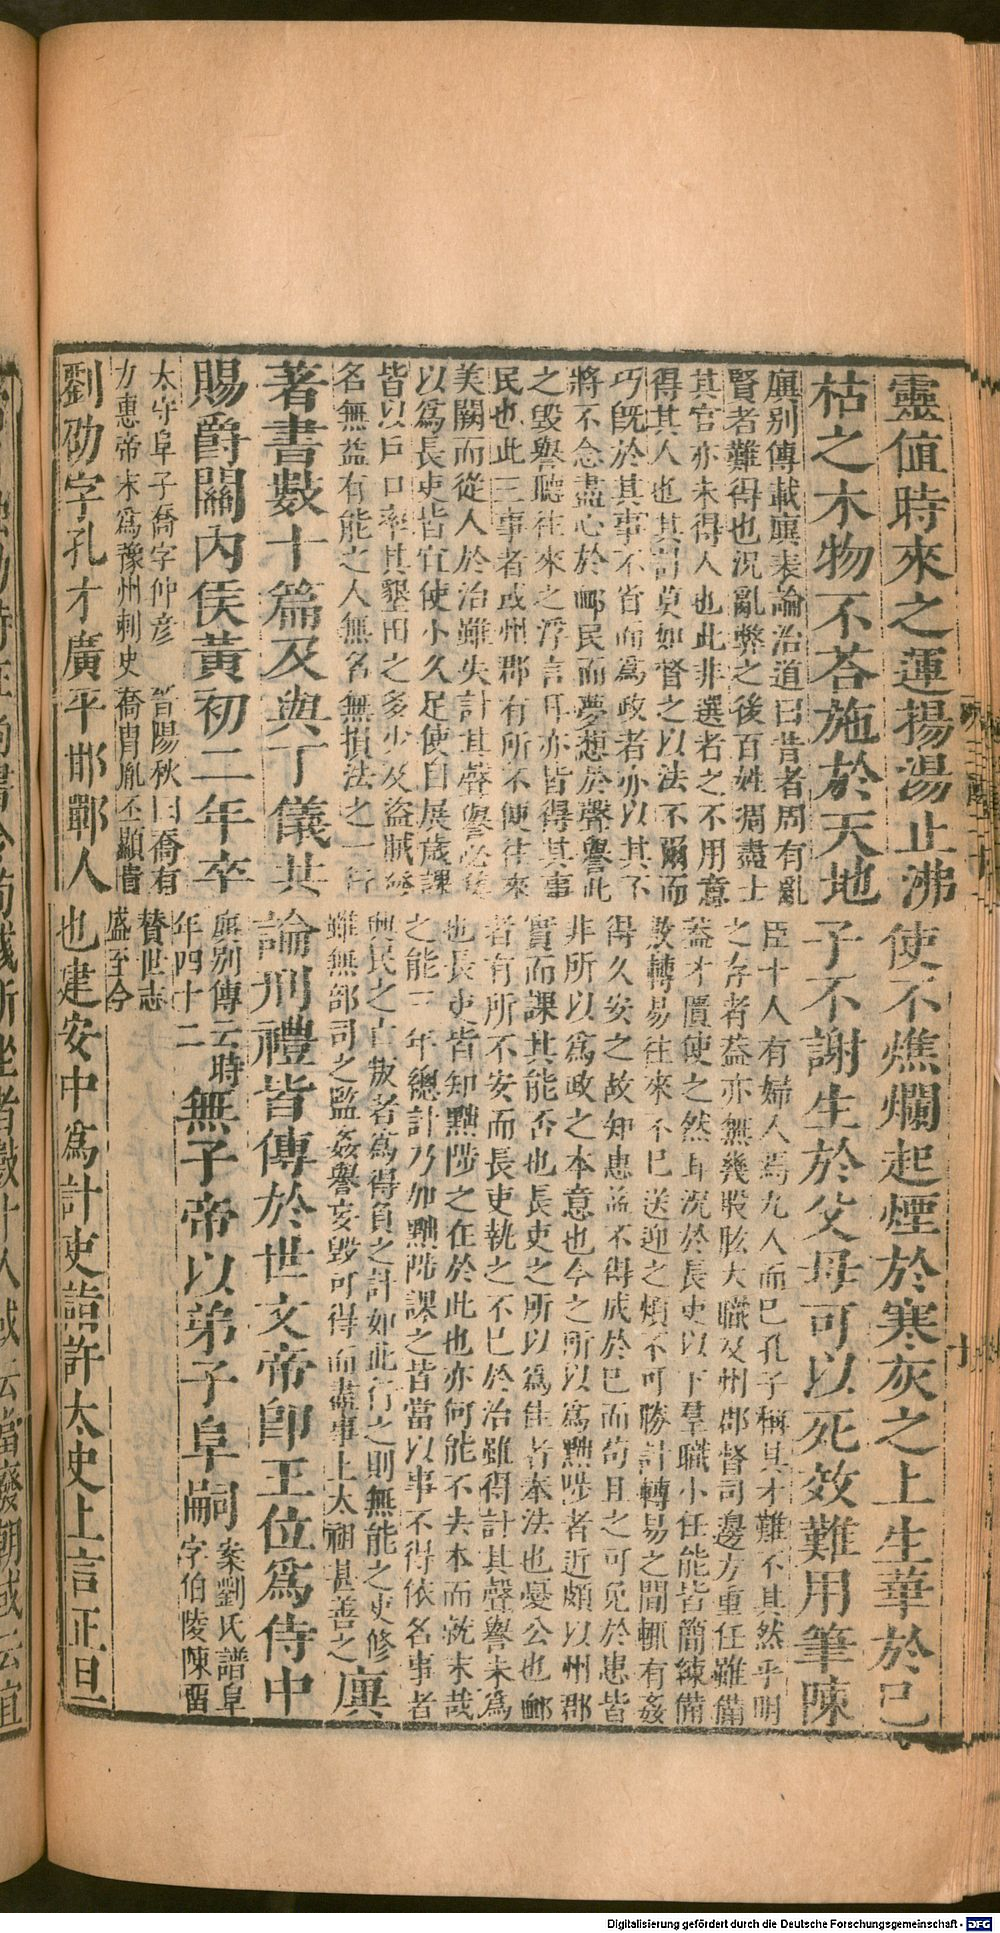 靈值時來之運揚湯止沸使不燋爛起煙於寒灰之上生華於已
枯之木物不荅施於天地子不謝生於父母可以死效難用筆陳
廙别傳載廙表論治道曰昔者周有亂臣十人有婦人焉九人而已孔子稱其才難不其然乎明
賢者難得也況亂弊之後百姓凋盡士之存者葢亦無幾股肱大職及州郡督司邊方重任雖備
其官亦未得人也此非選者之不用意葢才匱使之然耳況於長吏以下羣職小任能皆簡練備
得其人也其計莫如督之以法不爾而數轉易往來不已送迎之煩不可勝計轉易之間輒有姦
巧旣於其事不省而爲政者亦以其不得久安之故知惠益不得成於巳而苟且之可免於患皆
將不念盡心於䘏民而夢想於聲譽此非所以爲政之本意也今之所以爲黜陟者近頗以州郡
之毀譽聽往來之浮言耳亦皆得其事實而課其能否也長吏之所以爲佳者奉法也憂公也䘏
民也此三事者或州郡有所不便往來者有所不安而長吏執之不已於治雖得計其聲譽未爲
美闕而從人於治雖失計其聲譽必集也長吏皆知黜陟之在於此也亦何能不去本而就末哉
以爲長吏皆宜使小久足使自展歲課之能三年總計乃加黜陟課之皆當以事不得依名事者
皆以戶口率其墾田之多少及盜賊發興民之亡叛者爲得負之計如此行之則無能之吏修
名無益有能之人無名無損法之一行雖無部司之監姦譽妄毀可得而盡事上太祖甚善之 廙
著書數十篇及與丁儀共論刑禮皆傳於世文帝卽王位爲侍中
賜爵關內侯黃初二年卒 廙別傳云時年四十二 無子帝以弟子阜嗣 案劉氏譜阜字伯陵陳畱
太守阜子喬字仲彥 晉陽秋曰喬有贊世志
力惠帝末爲豫州刺史喬胄胤丕顯貴盛至今
劉劭字孔才廣平邯鄲人也建安中爲計吏詣許太史上言正旦
尚書令荀彧所坐者數十人或云當廢朝或云宜
十
Digitalisierung gefördert durch die Deutsche Forschungsgemeinschaft - DFG